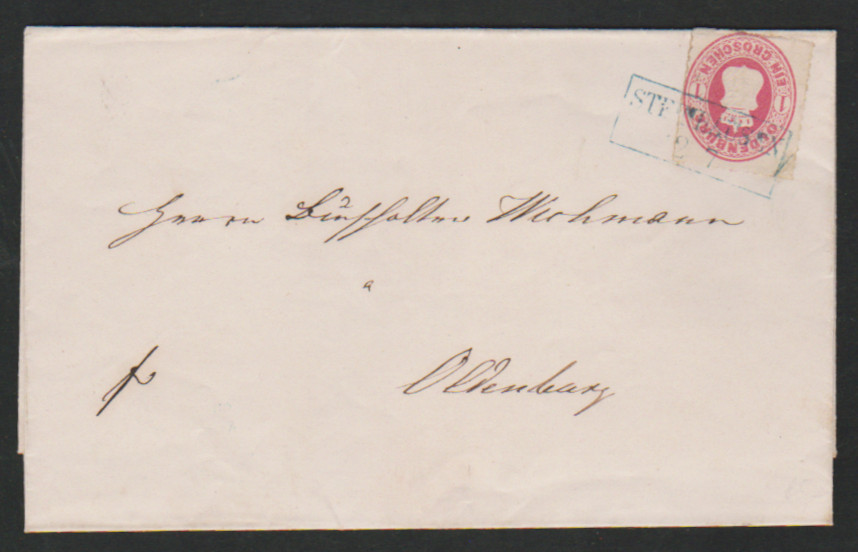 EIN GROSCHEN
1 1
OLDENBURG
STE
Herrn Buchhalter Wichmann
a
fr
Oldenburg